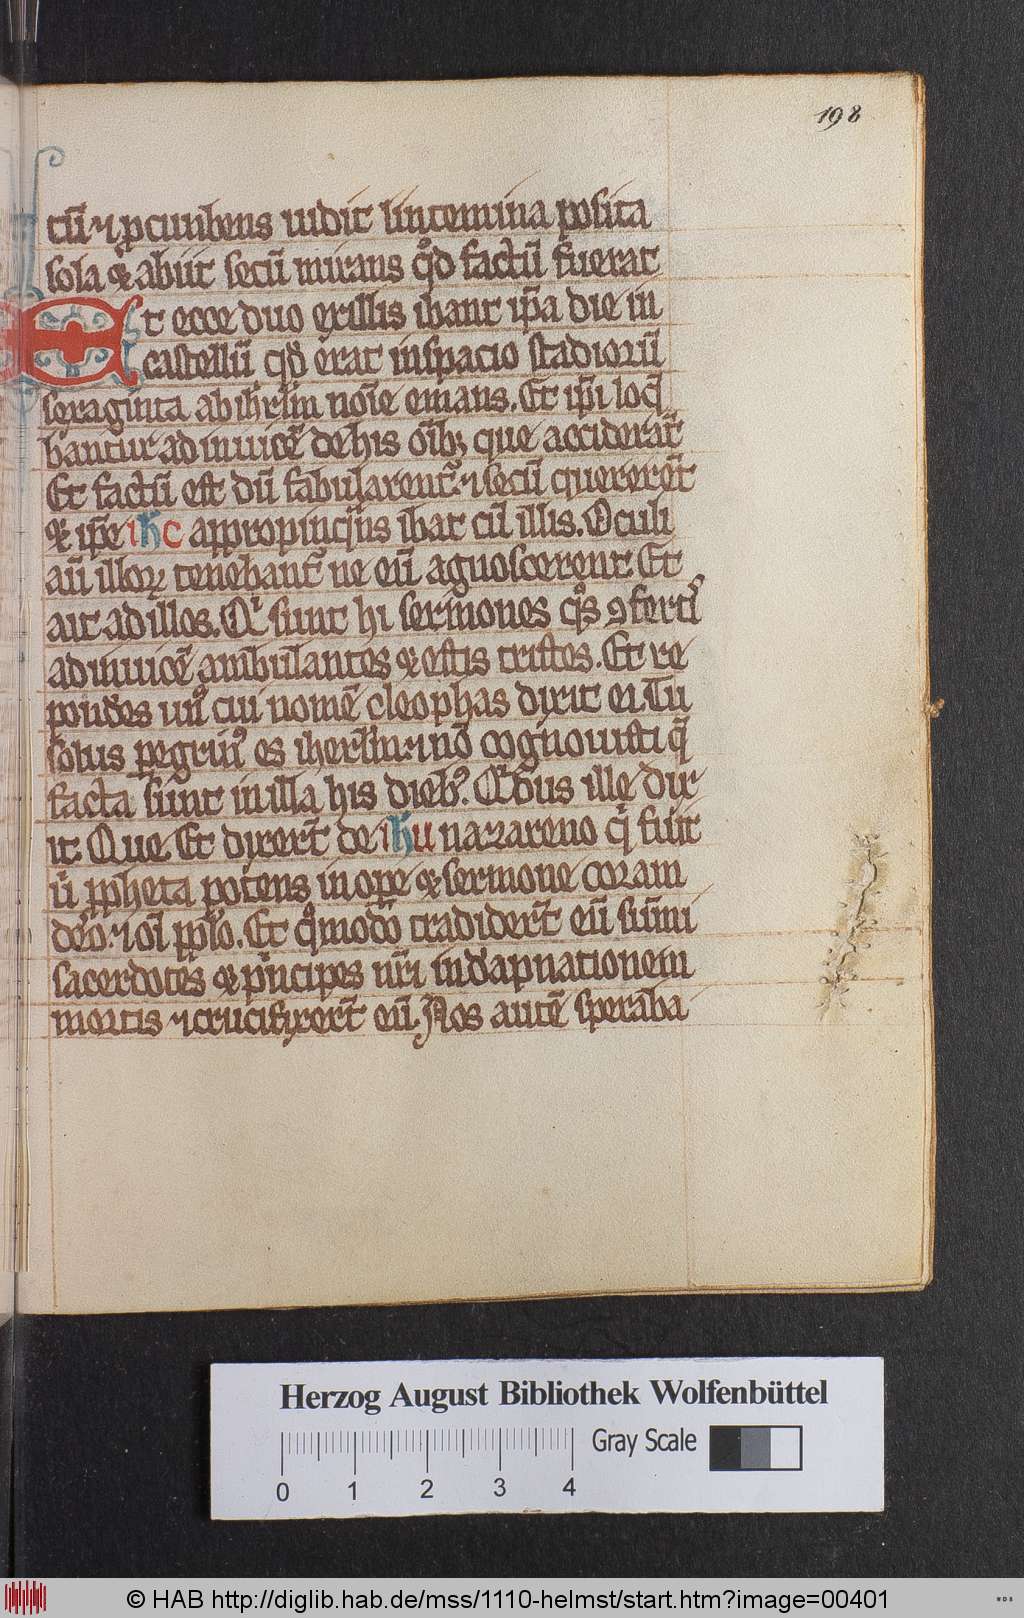 198
tū ⁊ ꝓcunbens uidit linteinina posita
sola & abiit secū mirans qͦd factū fuerat
Et ecce duo exillis ibant ip̄a die in
castellū qd̄ erat inspacio stadiorū
sexaginta abihrl̄m noīe emaus. Et ip̄i loq̄
bantur ad inuicē dehis oīb; que acciderāt
Et factū est dū fabularent᷑ ⁊ secū quererēt
& ip̄e ihc appropinq̄ns ibat cū illis. Oculi
aū illoꝝ tenebant᷑ ne eū agnoscerent. Et
ait ad illos. Qͥ sunt hi sermones qͦs ꝯferti
adinuicē ambulantes & estis tristes. Et re
pondēs unꝰ cui nomē cleophas dixit ei Tu
solus pegrinꝰ es iherlm̄ ⁊ nō cognouisti q̄
facta sunt inilla his diebꝰ. Qͥbus ille dix
it. Que. Et dixerт̄ de ihu nazareno qͥ fuit
uͥ ꝓpheta potens in oꝑe & sermone coram
deō ⁊ oī ppl̄o. Et qͦmodō tradiderт̄ eū sūmi
sacerdotes & pͥncipes nr̄i indāpnationem
mortis ⁊ crucifixerт̄ eū. Nos autē speraba
Herzog August Bibliothek Wolfenbüttel
Gray Scale
0 1 2 3 4
© HAB http://diglib.hab.de/mss/1110-helmst/start.htm?image=00401